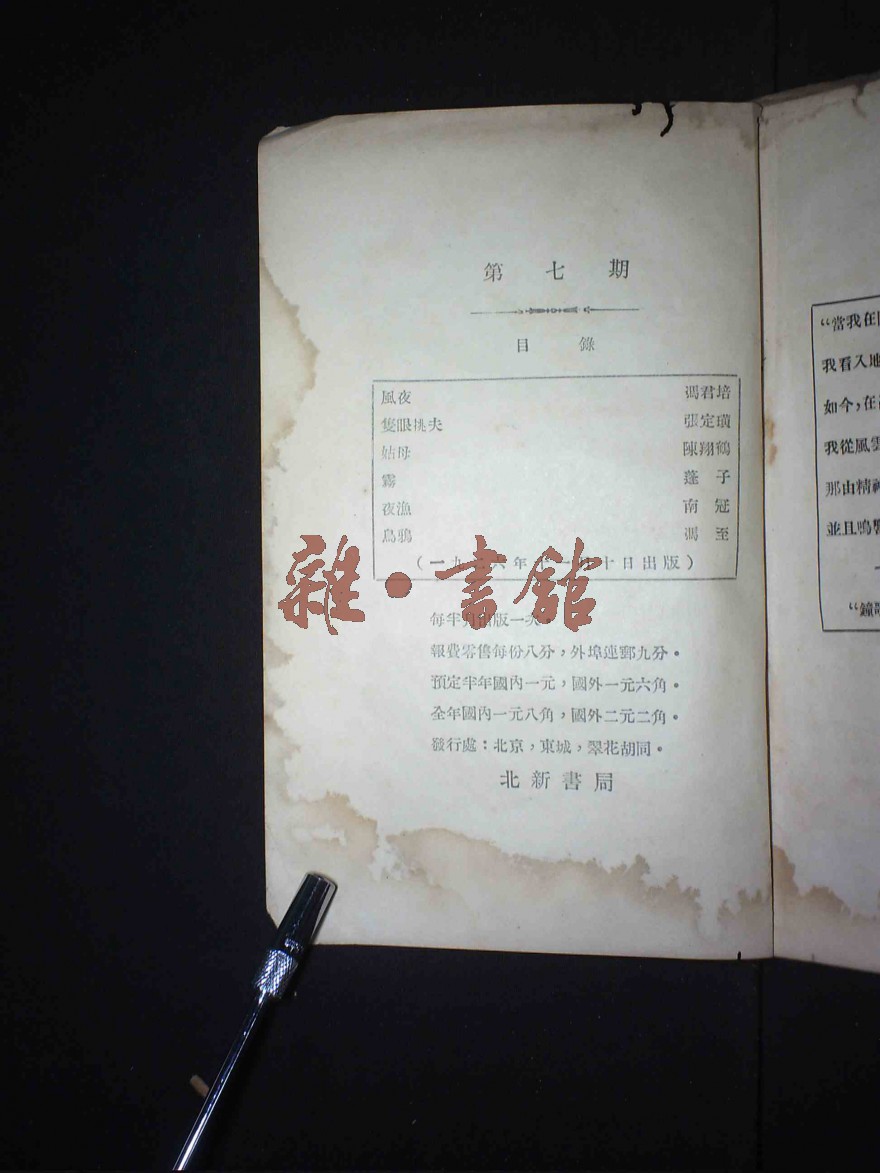 第七期
目錄
風夜 馮君培
隻眼挑夫 張定璜
姑母 陳翔鶴
霧 蓬子
夜漁 南冠
烏鴉 馮至
(一九 六年十一月十日出版)
每半月出版一次
報費零售每份八分,外埠連郵九分。
預定半年國內一元,國外一元六角。
全年國內一元八角,國外二元二角。
發行處:北京,東城,翠花胡同。
北新書局
雜·書館
“當我在
我看入地
如今,在
我從風雲
那由精神
並且鳴響
“鐘歌